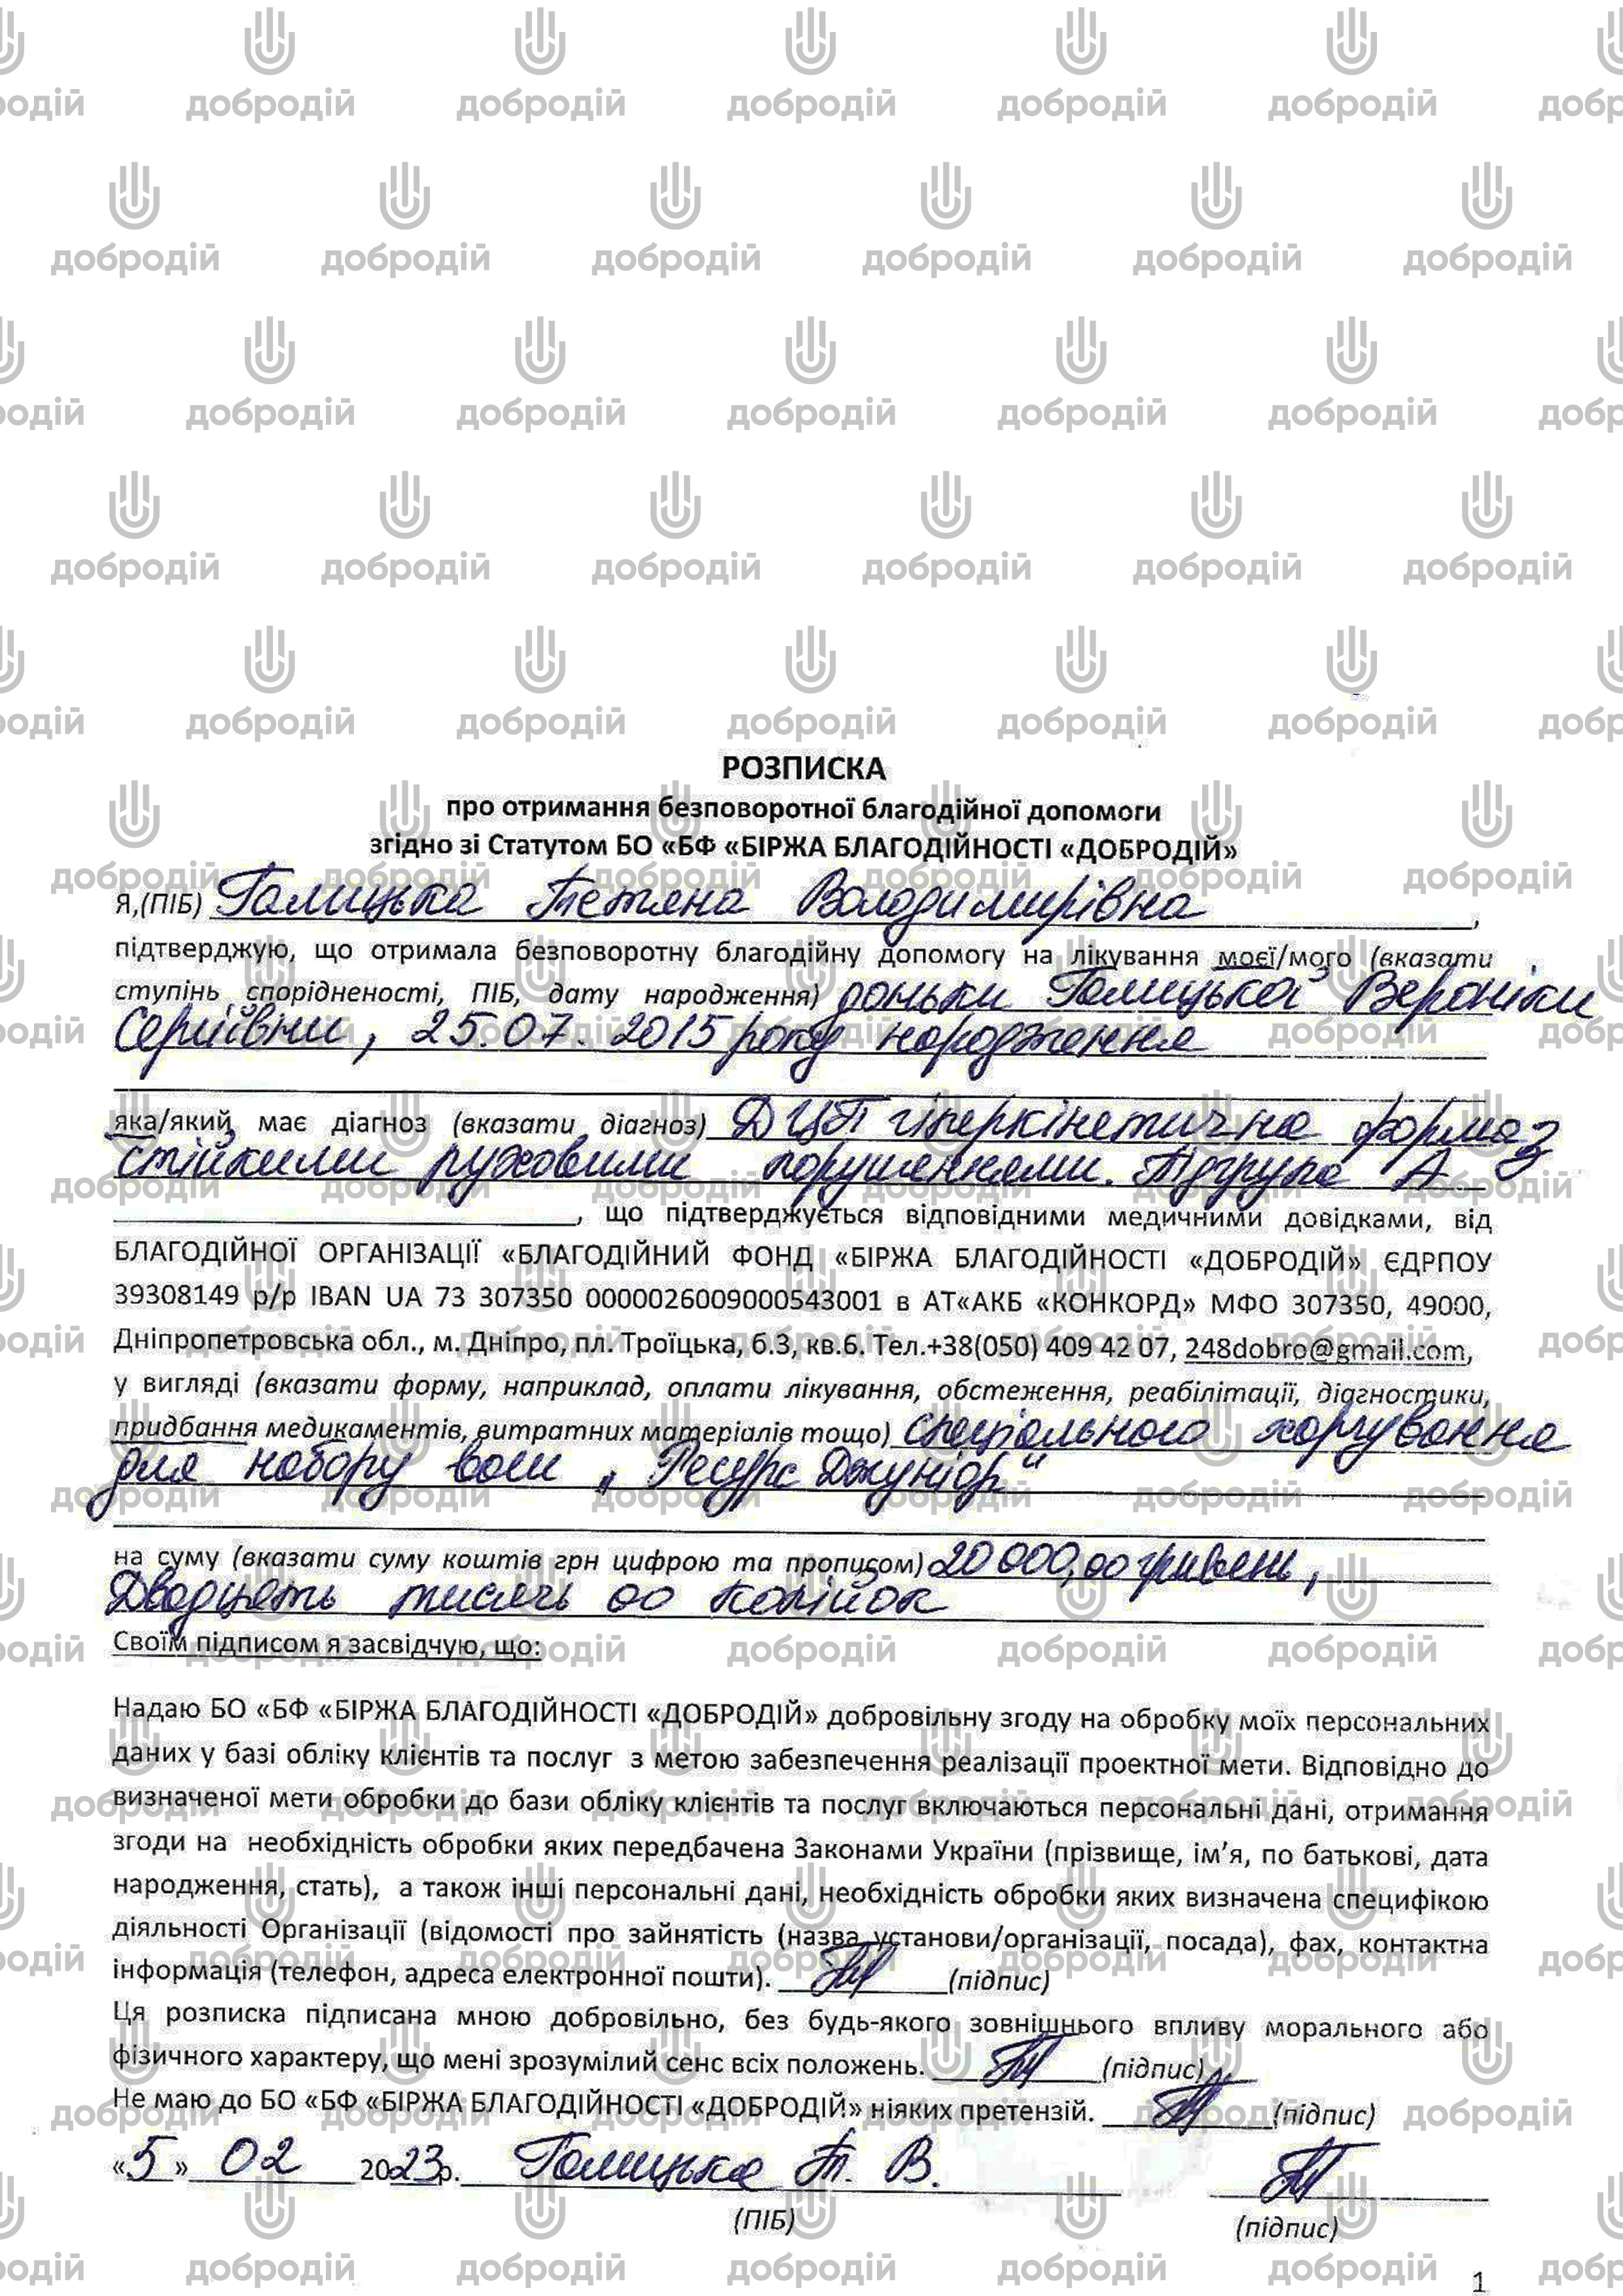 РОЗПИСКА
про отримання безповоротної благодійної допомоги
згідно зі Статутом БО «БФ «БІРЖА БЛАГОДІЙНОСТІ «ДОБРОДІЙ»
Я,(ПІБ) Галицька Тетяна Володимирівна,
підтверджую, що отримала безповоротну благодійну допомогу на лікування моєї/мого (вказати
ступінь спорідненості, ПІБ, дату народження) доньки Галицької Вероніки
Сергіївни, 25.07.2015 року народження
яка/який має діагноз (вказати діагноз) ДЦП гіперкінетична форма з
стійкими руховими порушеннями. Підгрупа А
, що підтверджується відповідними медичними довідками, від
БЛАГОДІЙНОЇ ОРГАНІЗАЦІЇ «БЛАГОДІЙНИЙ ФОНД «БІРЖА БЛАГОДІЙНОСТІ «ДОБРОДІЙ» ЄДРПОУ
39308149 р/р IBAN UA 73 307350 0000026009000543001 в АТ«АКБ «КОНКОРД» МФО 307350, 49000,
Дніпропетровська обл., м. Дніпро, пл. Троїцька, б.3, кв.6. Тел.+38(050) 409 42 07, 248dobro@gmail.com,
у вигляді (вказати форму, наприклад, оплати лікування, обстеження, реабілітації, діагностики,
придбання медикаментів, витратних матеріалів тощо) спеціального харчування
для набору ваги „Ресурс Джуніор“
на суму (вказати суму коштів грн цифрою та прописом) 20 000,00 гривень,
Двадцять тисяч 00 копійок
Своїм підписом я засвідчую, що:
Надаю БО «БФ «БІРЖА БЛАГОДІЙНОСТІ «ДОБРОДІЙ» добровільну згоду на обробку моїх персональних
даних у базі обліку клієнтів та послуг з метою забезпечення реалізації проектної мети. Відповідно до
визначеної мети обробки до бази обліку клієнтів та послуг включаються персональні дані, отримання
згоди на необхідність обробки яких передбачена Законами України (прізвище, ім’я, по батькові, дата
народження, стать), а також інші персональні дані, необхідність обробки яких визначена специфікою
діяльності Організації (відомості про зайнятість (назва установи/організації, посада), фах, контактна
інформація (телефон, адреса електронної пошти). (підпис)
Ця розписка підписана мною добровільно, без будь-якого зовнішнього впливу морального або
фізичного характеру, що мені зрозумілий сенс всіх положень. (підпис)
Не маю до БО «БФ «БІРЖА БЛАГОДІЙНОСТІ «ДОБРОДІЙ» ніяких претензій. (підпис)
«5» 02 2023р. Галицька Т. В.
(ПІБ) (підпис)
1